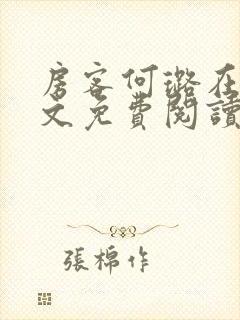 房客何璐在
文免費閱讀
張棉作